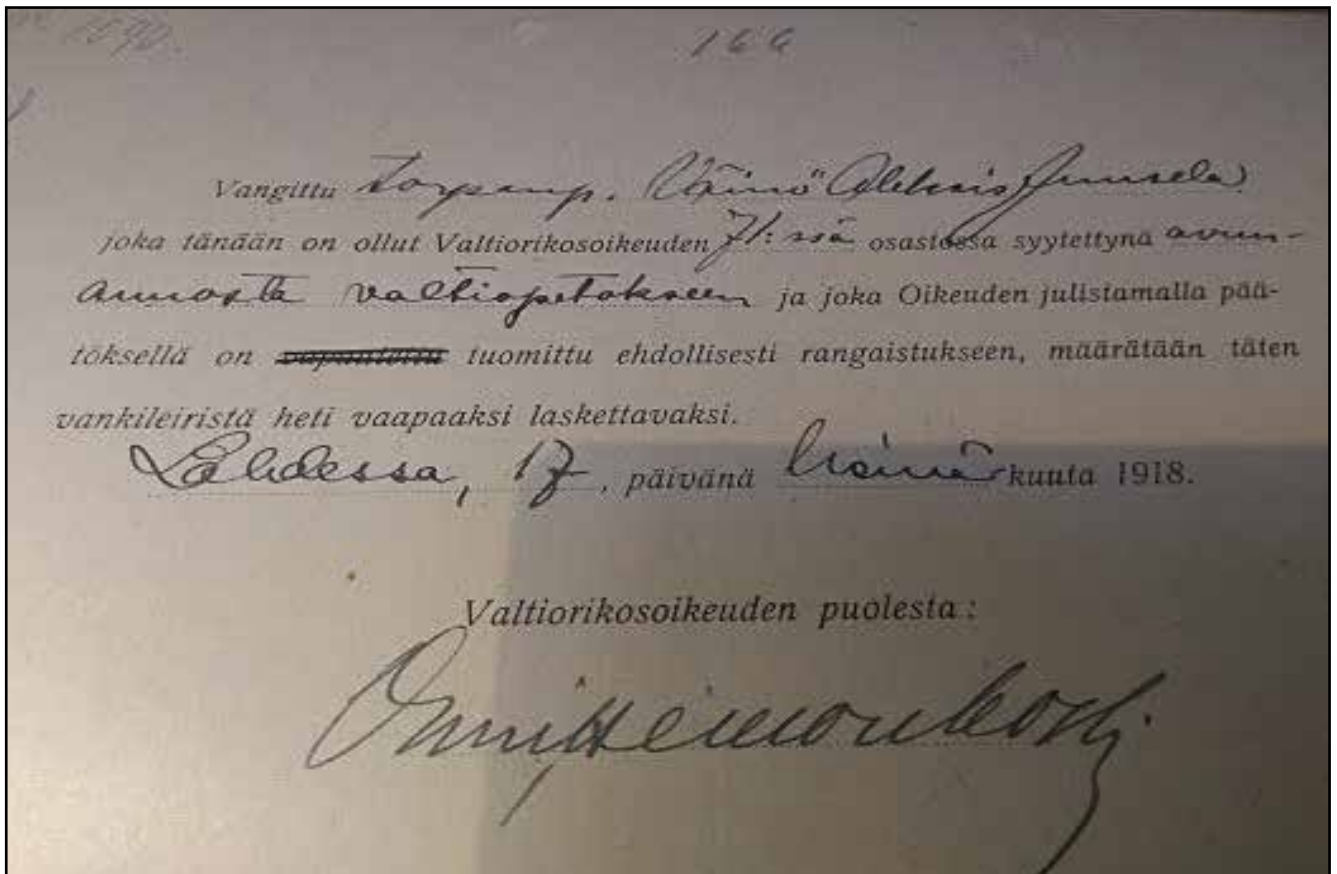 166
Vangittu torpanp. Väinö Aleksis Junnela
joka tänään on ollut Valtiorikosoikeuden 71:ssä osastossa syytettynä avun-
annosta valtiopetokseen ja joka Oikeuden julistamalla pää-
töksellä on vapautettu tuomittu ehdollisesti rangaistukseen, määrätään täten
vankileiristä heti vaapaaksi laskettavaksi.
Lahdessa, 17, päivänä heinä kuuta 1918.
Valtiorikosoikeuden puolesta: